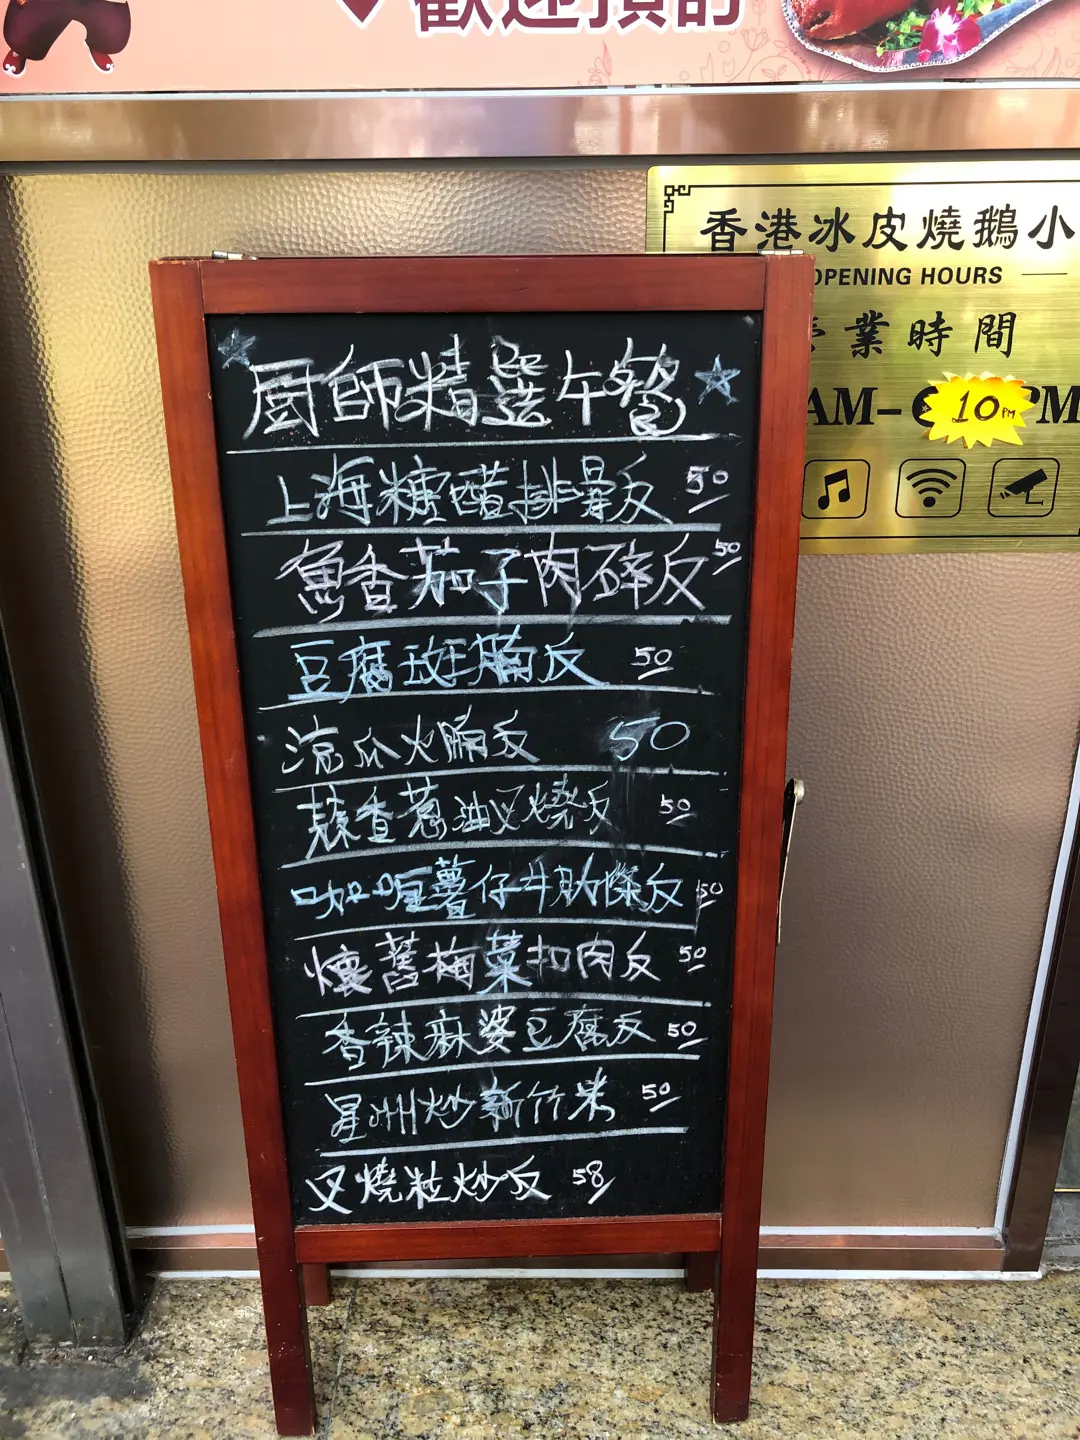 歡迎預訂
香港冰皮燒鵝小
OPENING HOURS
業時間
AM-
10PM
PM
厨師精選午餐
上海糖醋排骨反 50
魚香茄子肉碎反 50
豆腐斑腩反 50
凉瓜火腩反 50
蒜香蔥油叉燒反 50
咖喱薯仔牛肋條反 50
懷舊梅菜扣肉反 50
香辣麻婆豆腐反 50
星州炒新竹米 50
叉燒粒炒反 58